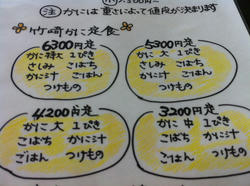 注 かには重さによって値段が決まります
竹崎かに定食
6300円定
かに特大 1ぴき
さしみ こばち
かに汁 ごはん
つけもの
5300円定
かに 大 1ぴき
さしみ こばち
かに汁 ごはん
つけもの
4200円定
かに 大 1ぴき
こばち かに汁
ごはん つけもの
3200円定
かに 中 1ぴき
こばち かに汁
ごはん つけもの